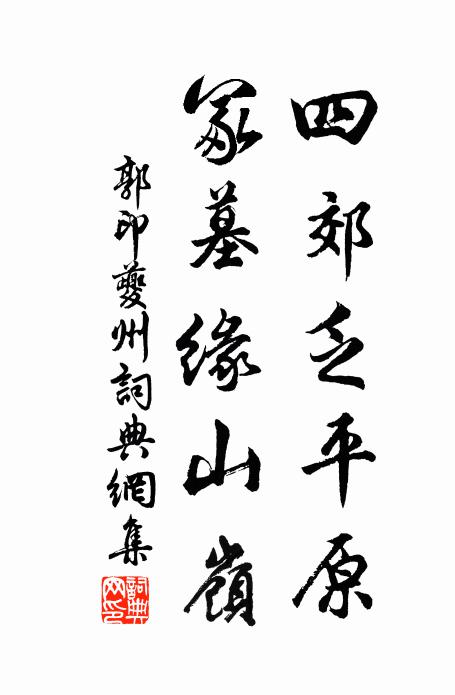 四郊乏平原
冢墓緣山嶺
郭印夔州詞典網集